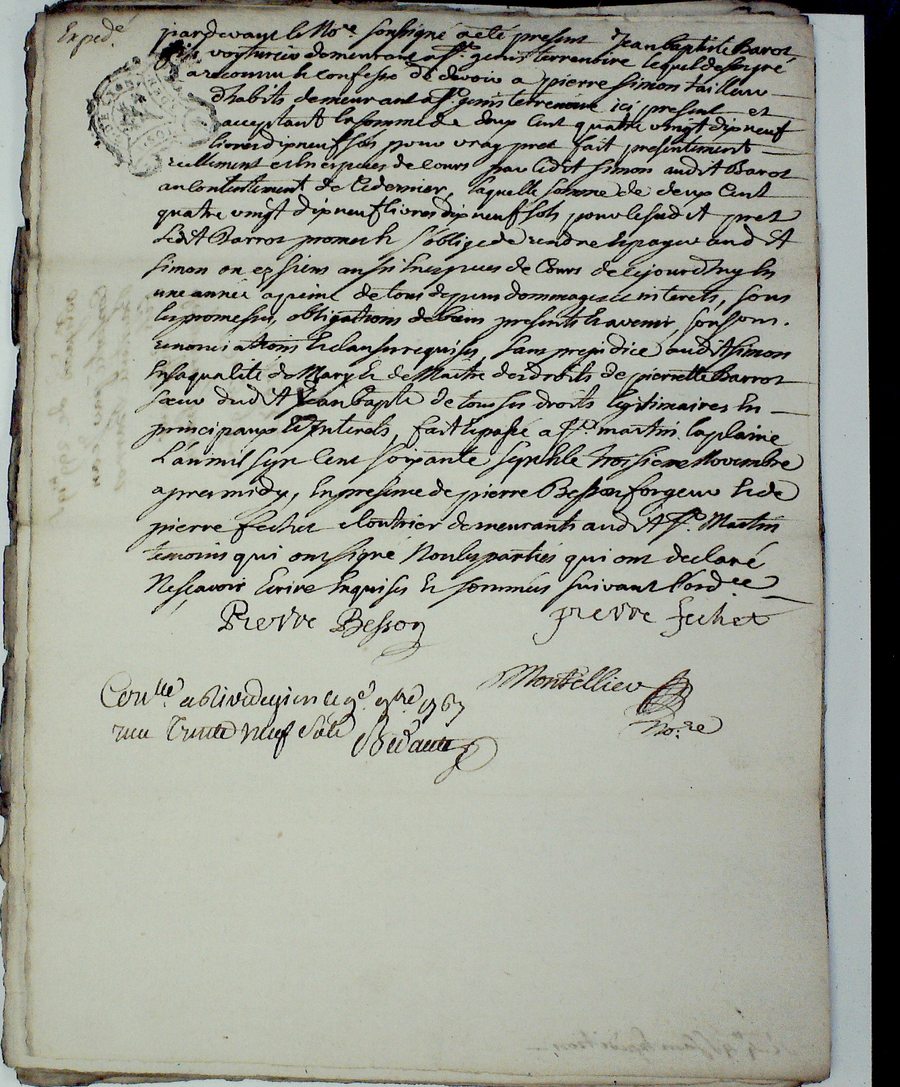 Expedé
pardevant le No.re soussigné a été present Jean baptiste Barrot
fils voiturier demeurant a St. genis terrenoire lequel de son gré
a reconnu et confessé de devoir a pierre simon tailleur
d'habits demeurant a St. genis terrenoire ici present et
acceptant la somme de deux cent quatre vingt dix neuf
livres dix neuf sols pour vray pret fait presentement
reellement et en especes de cours par ledit simon audit Barrot
au contentement de ce dernier, laquelle somme de deux cent
quatre vingt dix neuf livres dix neuf sols pour le susdit pret
ledit Barrot promet et s'oblige de rendre et payer audit
simon ou es siens aussi en especes de cours de cejourd'huy en
une année a peine de tous depens dommages et interets, sous
les promesses, obligations de biens presents et a venir, soussons.
renonciations et clauses requises, sans prejudice audit simon
en sa qualité de Mary et de Maitre des droits de pierrette Barrot
sœur dudit Jean bapte. de tous ses droits legitimaires en
principaux et interets, fait et passé a St. martin la plaine
L'an mil sept cent soixante sept et le troisieme Novembre
apres midy, en presence de pierre Besson forgeur et de
pierre fechet cloutrier demeurants audit St. Martin
temoins qui ont signé Non les parties qui ont declaré
Ne sçavoir Ecrire enquises et sommées suivant l'ord.ce
Pierre Besson pierre fechet
Montellier
No.re
Con.lle a Rivedegier le 9e. 9bre. 1767
reçu Trente neuf sols